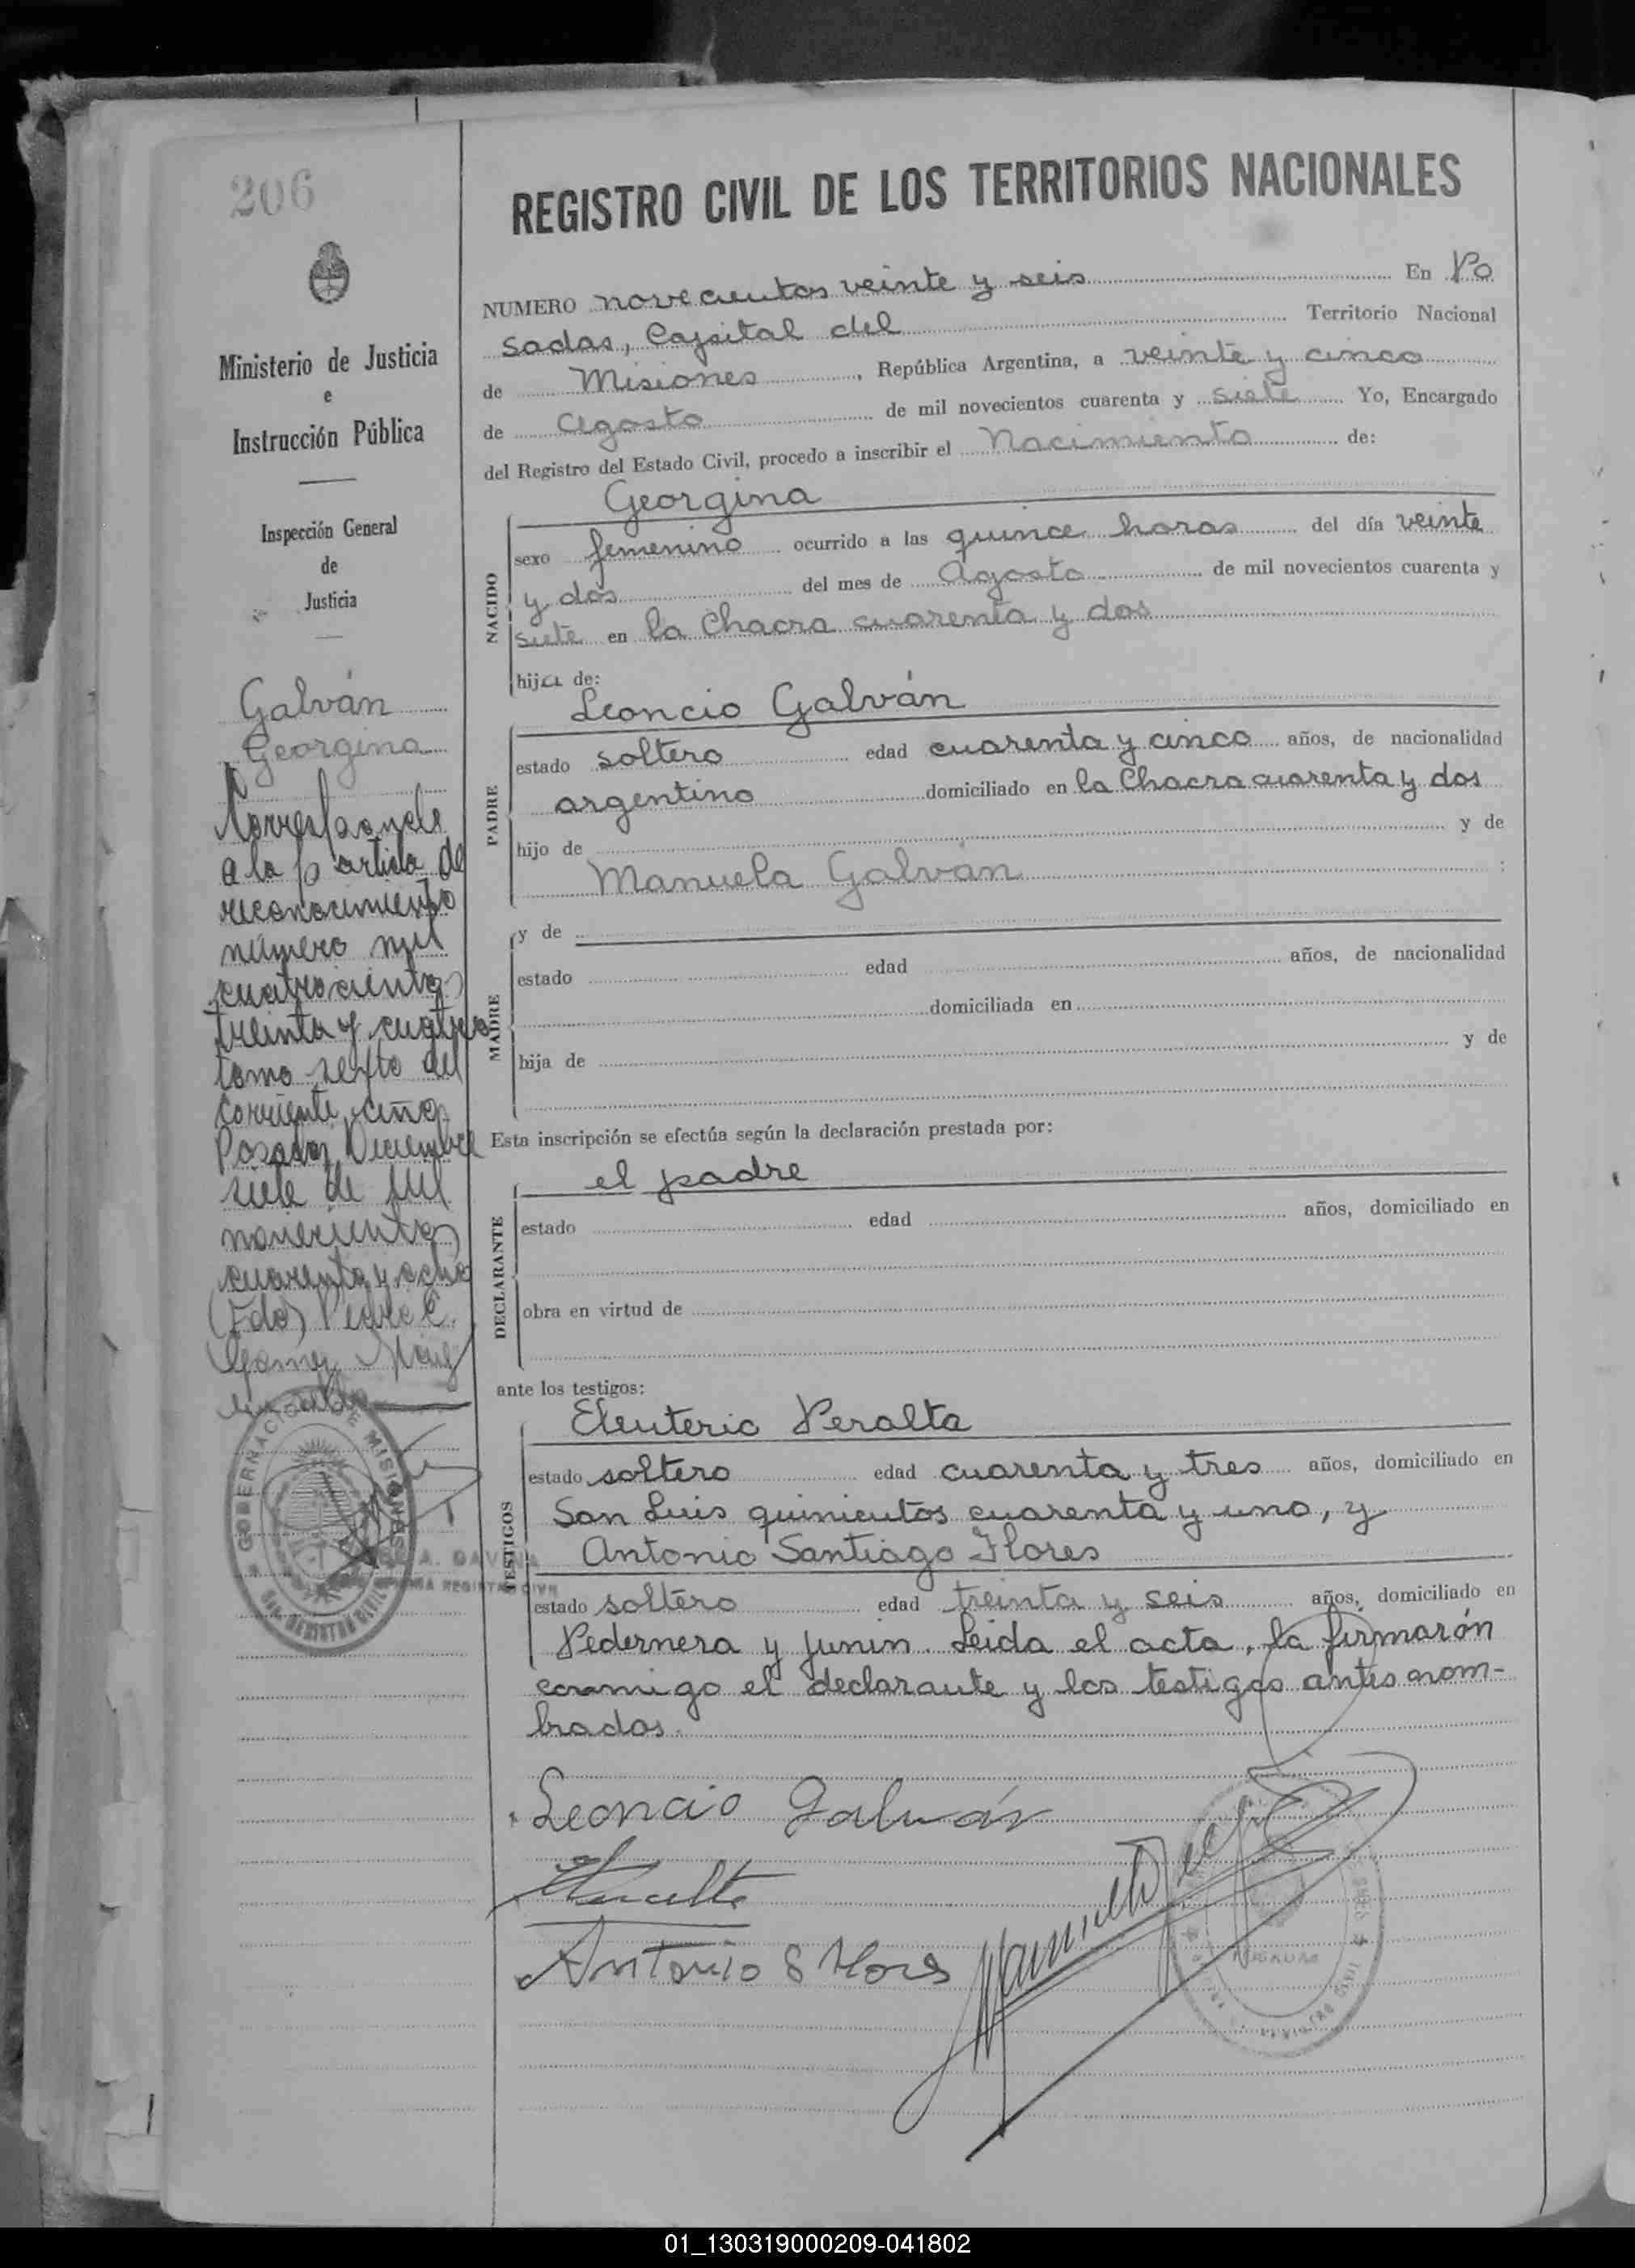 206
Ministerio de Justicia
e
Instrucción Pública
Inspección General
de
Justicia
Galván
Georgina
Corresponde
a la partida de
reconocimiento
número mil
cuatrocientos
treinta y cuatro
tomo sexto del
corriente año.
Posadas, Diciembre
siete de mil
novecientos
cuarenta y ocho
(Fdo) Pedro E.
Gómez
GOBERNACION DE MISIONES
REGISTRO CIVIL
REGISTRO CIVIL DE LOS TERRITORIOS NACIONALES
NUMERO novecientos veinte y seis En Po
sadas, Capital del Territorio Nacional
de Misiones, República Argentina, a veinte y cinco
de Agosto de mil novecientos cuarenta y siete Yo, Encargado
del Registro del Estado Civil, procedo a inscribir el Nacimiento de:
NACIDO
Georgina
sexo femenino ocurrido a las quince horas del día veinte
y dos del mes de Agosto de mil novecientos cuarenta y
siete en la Chacra cuarenta y dos
hija de:
PADRE
Leoncio Galván
estado soltero edad cuarenta y cinco años, de nacionalidad
argentino domiciliado en la Chacra cuarenta y dos
hijo de y de
Manuela Galván :
MADRE
y de
estado edad años, de nacionalidad
domiciliada en
hija de y de
Esta inscripción se efectúa según la declaración prestada por:
DECLARANTE
el padre
estado edad años, domiciliado en
obra en virtud de
ante los testigos:
TESTIGOS
Eleuterio Peralta
estado soltero edad cuarenta y tres años, domiciliado en
San Luis quinientos cuarenta y uno, y
Antonio Santiago Flores
estado soltero edad treinta y seis años, domiciliado en
Pedernera y Junin. Leida el acta, la firmarón
conmigo el declarante y los testigos antes nom-
brados.
Leoncio Galván
EPeralta
Antonio S Flores
POSADAS
01_130319000209-041802